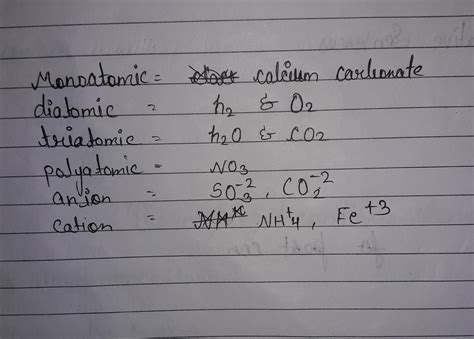 Monoatomic = calcium carbonate
diatomic = h₂ & O₂
triatomic = h₂O & CO₂
polyatomic = NO₃
anion = SO₃⁻², CO₂⁻²
cation = NH⁺₄, Fe⁺³